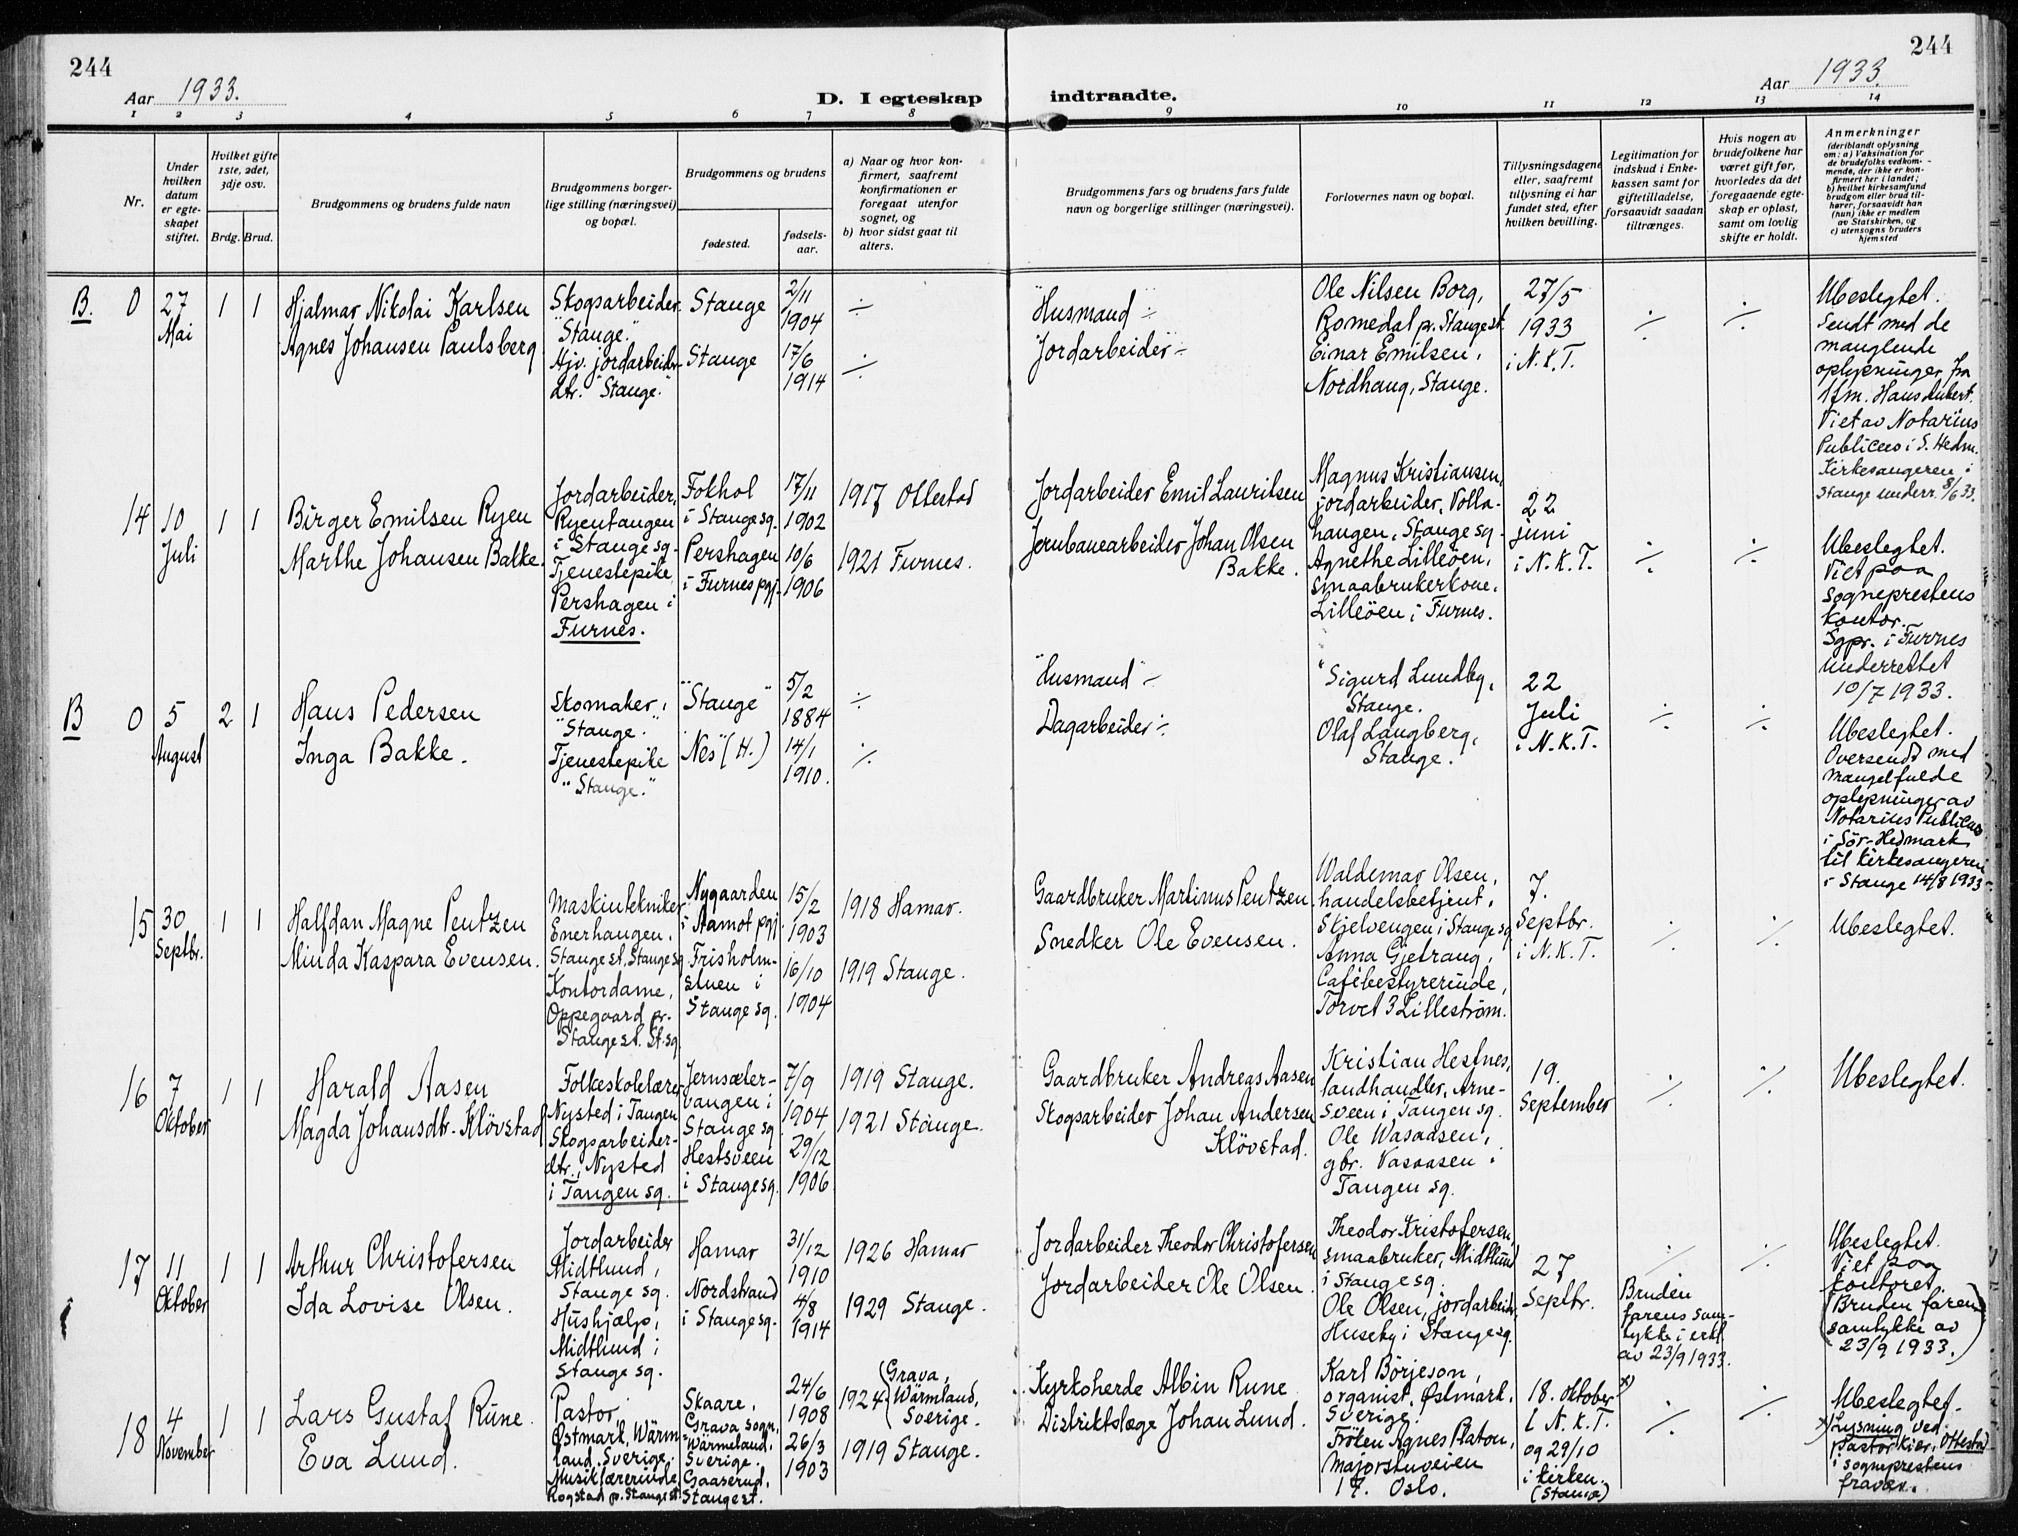 244
Aar 1933.
D. I egteskap
indtraadte.
Aar 1933.
244
1 2 3 4 5 6 7 8 9 10 11 12 13 14
Nr.
Under hvilken datum er egteskapet stiftet.
Hvilket gifte 1ste, 2det, 3dje osv.
Brdg. Brud.
Brudgommens og brudens fulde navn
Brudgommens borgerlige stilling (næringsvei) og bopæl.
Brudgommens og brudens
fødested.
fødselsaar.
a) Naar og hvor konfirmert, saafremt konfirmationen er foregaat utenfor sognet, og
b) hvor sidst gaat til alters.
Brudgommens fars og brudens fars fulde navn og borgerlige stillinger (næringsvei).
Forlovernes navn og bopæl.
Tillysningsdagene eller, saafremt tillysning ei har fundet sted, efter hvilken bevilling.
Legitimation for indskud i Enkekassen samt for giftetilladelse, forsaavidt saadan tiltrænges.
Hvis nogen av brudefolkene har været gift før, hvorledes da det foregaaende egteskap er opløst, samt om lovlig skifte er holdt.
Anmerkninger (deriblandt oplysning om: a) Vaksination for de brudefolks vedkommende, der ikke er konfirmert her i landet; b) hvilket kirkesamfund brudgom eller brud tilhører, forsaavidt han (hun) ikke er medlem av Statskirken, og c) utensogns bruders hjemsted
B. 0
27 Mai
1 1
Hjalmar Nikolai Karlsen
Agnes Johansen Paulsberg
Skogsarbeider
"Stange."
Hjv. jordarbeider-
dtr. "Stange."
Stange
Stange
2/11 1904
17/6 1914
÷
÷
"Husmand" ÷
"Jordarbeider" ÷
Ole Nilsen Borg,
Romedal p. Stange st.
Einar Emilsen,
Nordhaug, Stange.
27/5
1933
i N.K.T.
÷
÷
Ubeslegtet.
Sendt med de
manglende
oplysninger fra
Viet av Notarius
Publicus i S. Hedm.
Kirkesangeren i
Stange underr. 8/6 33.
14
10 Juli
1 1
Birger Emilsen Ryen
Marthe Johansen Bakke.
Jordarbeider,
Ryentangen
i Stange sg.
Tjenestepike
Pershagen i
Furnes.
Fokhol
i Stange sg.
Pershagen
i Furnes pgj.
17/11 1902
10/6 1906
1917 Ottestad
1921 Furnes.
Jordarbeider Emil Lauritsen
Jernbanearbeider Johan Olsen
Bakke.
Magnus Kristiansen,
jordarbeider, Volla-
haugen, Stange sg.
Agnethe Lilleöen,
smaabrukerkone,
Lilleöen i Furnes.
22
juni
i N.K.T.
÷
÷
Ubeslegtet.
Viet paa
sogneprestens
kontor.
Sgpr. i Furnes
underrettet
10/7 1933.
B 0
5 August
2 1
Hans Pedersen
Inga Bakke.
Skomaker,
"Stange."
Tjenestepike
"Stange."
"Stange"
Nes (H.)
5/2 1884
14/1 1910.
÷
÷
"Husmand" ÷
Dagarbeider ÷
"Sigurd Lundby,
Stange.
Olaf Langberg,
Stange.
22
Juli
i N.K.T.
÷
÷
Ubeslegtet.
Oversendt med
mangelfulde
oplysninger av
Notarius Publicus
i Sör-Hedmark
til kirkesangeren
i Stange 14/8 1933
15
30 Septbr.
1 1
Halfdan Magne Pentzen
Minda Kaspara Evensen.
Maskintekniker
Enerhaugen,
Stange st. Stange sg.
Kontordame,
Oppegaard pr.
Stange st. St. sg.
Nygaarden
i Aamot pgj.
Frisholm-
stuen i
Stange sg.
15/2 1903
16/10 1904
1918 Hamar.
1919 Stange.
Gaardbruker Martinus Pentzen.
Snedker Ole Evensen.
Waldemar Olsen,
handelsbetjent,
Skjelvengen i Stange sg
Anna Gjetrang,
Cafébestyrerinde,
Torvet 3 Lilleström.
7.
Septbr.
i N.K.T.
÷
÷
Ubeslegtet.
16
7 Oktober
1 1
Harald Aasen
Magda Johansdtr. Klövstad
Folkeskolelærer
Nysted i Tangen
Skogsarbeider-
dtr., Nysted
i Tangen sg.
Jernsæter-
vangen i
Stange sg.
Hestsveen
i Stange sg.
7/9 1904
29/12 1906
1919 Stange.
1921 Stange.
Gaardbruker Andreas Aasen
Skogsarbeider Johan Andersen
Klövstad.
Kristian Hestnes,
landhandler, Arne-
sveen i Tangen sg.
Ole Wasaasen,
gbr. Vasaasen i
Tangen sg.
19.
September
÷
÷
Ubeslegtet.
17
11 Oktober
1 1
Arthur Christofersen
Ida Lovise Olsen.
Jordarbeider
Midtlund,
Stange sg.
Hushjælp,
Midtlund i
Stange sg.
Hamar
Nordstrand
i Stange sg.
31/12 1910
4/8 1914
1926 Hamar
1929 Stange.
Jordarbeider Theodor Christofersen
Jordarbeider Ole Olsen.
Theodor Kristofersen,
smaabruker, Midtlund
i Stange sg.
Ole Olsen, jordarbeider,
Huseby i Stange sg.
27
Septbr.
÷
Bruden
farens sam-
tykke i erkl.
av 23/9 1933.
÷
Ubeslegtet.
Viet paa
kontoret.
(Bruden faren
samtykke av
23/9 1933.)
18
4 November
1 1
Lars Gustaf Rune.
Eva Lund.
Pastor,
Östmark, Wärm-
land, Sverige.
Musiklærerinde,
Rogstad p. Stange st.
Skaare,
Grava sogn,
Wärmeland,
Sverige.
Gaaserud,
Stange st.
24/6 1908
26/3 1903
1924 (Grava,
Wärmland,
Sverige.
1919 Stange.
Kyrkoherde Albin Rune
Distriktslæge Johan Lund.
Karl Börjeson,
organist, Östmark,
Sverige.
Fröken Agnes Platou,
Majorstuveien
17. Oslo.
18. Oktober x)
i N.K.T.
og 29/10
i kirken.
(Stange)
÷
÷
Ubeslegtet.
x) Lysning ved
Pastor Kiær, Ottestad
i sogneprestens
fravær.